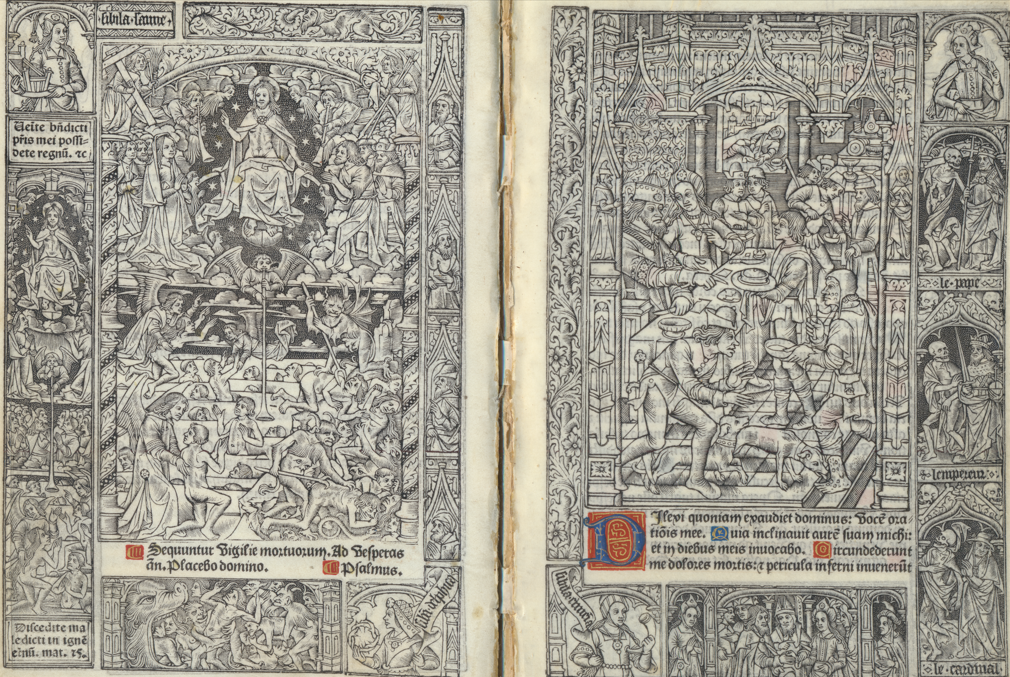 sibila·
Ueite bñdicti
p̃ris mei possi-
dete regnū. ⁊c
Discedite ma
ledicti in ignē
et̃nū. mat. 25.
Sequuntur Vigilie mortuorum. Ad Vesperas
añ. Placebo domino. Psalmus.
DIlexi quoniam exaudiet dominus: Vocē ora
tiōis mee. Quia inclinauit aurē suam michi:
et in diebus meis inuocabo. Circundederunt
me dolores mortis: ⁊ pericula inferni inuenerūt
le·pape
lempereur
le·cardinal